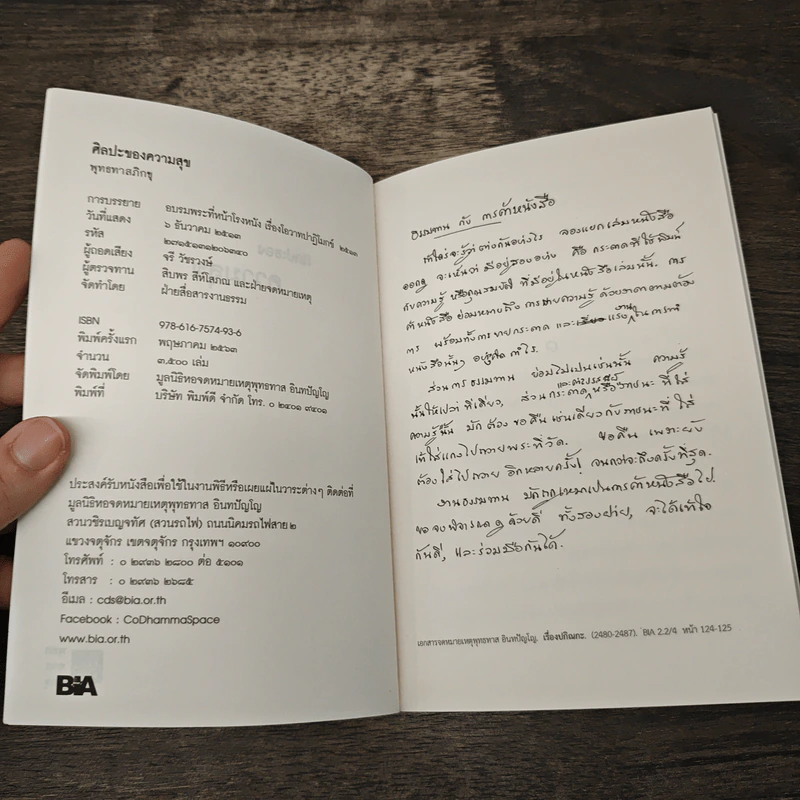 ศิลปะของความสุข
พุทธทาสภิกขุ
การบรรยาย อบรมพระที่หน้าโรงหนัง เรื่องโอวาทปาฏิโมกข์ ๒๕๑๓
วันที่แสดง ๖ ธันวาคม ๒๕๑๓
รหัส ๒๗๑๕๑๓๑๒๐๖๓๔๐
ผู้ถอดเสียง จรี วัชรวงษ์
ผู้ตรวจทาน สิบพร สีห์โสภณ และฝ่ายจดหมายเหตุ
จัดทำโดย ฝ่ายสื่อสารงานธรรม
ISBN 978-616-7574-93-6
พิมพ์ครั้งแรก พฤษภาคม ๒๕๖๓
จำนวน ๓,๕๐๐ เล่ม
จัดพิมพ์โดย มูลนิธิหอจดหมายเหตุพุทธทาส อินทปัญโญ
พิมพ์ที่ บริษัท พิมพ์ดี จำกัด โทร. ๐ ๒๔๐๑ ๙๔๐๑
ประสงค์รับหนังสือเพื่อใช้ในงานพิธีหรือเผยแผ่ในวาระต่างๆ ติดต่อที่
มูลนิธิหอจดหมายเหตุพุทธทาส อินทปัญโญ
สวนวชิรเบญจทัศ (สวนรถไฟ) ถนนนิคมรถไฟสาย ๒
แขวงจตุจักร เขตจตุจักร กรุงเทพฯ ๑๐๙๐๐
โทรศัพท์ : ๐ ๒๙๓๖ ๒๘๐๐ ต่อ ๕๑๐๑
โทรสาร : ๐ ๒๙๓๖ ๒๖๘๕
อีเมล : cds@bia.or.th
Facebook : CoDhammaSpace
www.bia.or.th
BIA
ธรรมทาน กับ การค้าหนังสือ
เข้าใจว่าต่างกันอย่างไร ลองแยกเล่มหนังสือ
ออกดู จะเห็นว่า มีอยู่สองอย่าง คือ กระดาษที่ใช้พิมพ์
กับความรู้ หรือคุณสมบัติ ที่มีอยู่ในหนังสือเล่มนั้น. การ
ค้าหนังสือ ย่อมหมายถึง การขายความรู้ ด้วยราคาตามต้อง
การ พร้อมทั้งการขายกระดาษ และแรงงานในการทำ
หนังสือนั้นๆ
ส่วนการธรรมทาน ย่อมไม่เป็นเช่นนั้น ความรู้
นั้นให้เปล่าทีเดียว, ส่วนกระดาษและค่าแรง หรือภาชนะ ที่ใส่
ความรู้นั้น มักต้องขอคืน เช่นเดียวกับภาชนะที่ใส่
เข้าใส่แกงไปถวายพระที่วัด. ขอคืน เพราะยัง
ต้องใส่ไปถวาย อีกหลายครั้ง! จนกว่าจะถึงครั้งที่สุด.
งานธรรมทาน มักถูกเหมาเป็นการค้าหนังสือไป.
ขอจงพิจารณาดูด้วยดี ทั้งสองฝ่าย, จะได้เข้าใจ
กันดี, และร่วมมือกันได้.
เอกสารจดหมายเหตุพุทธทาส อินทปัญโญ. เรื่องปกิณกะ. (2480-2487). BIA 2.2/4 หน้า 124-125